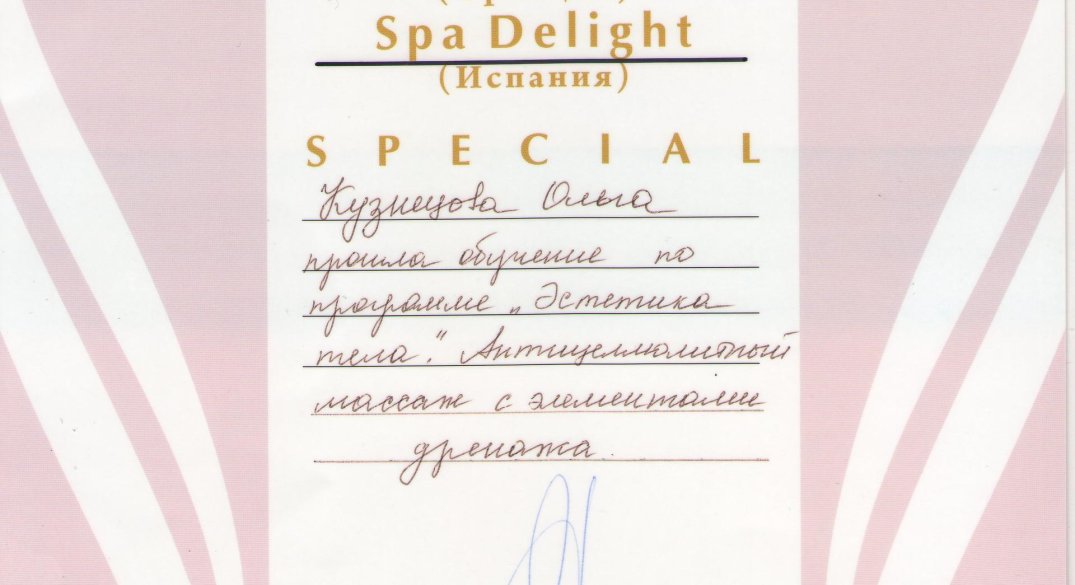 Spa Delight
(Испания)
SPECIAL
Кузнецова Ольга
прошла обучение по
программе „Эстетика
тела." Антицеллюлитный
массаж с элементами
дренажа